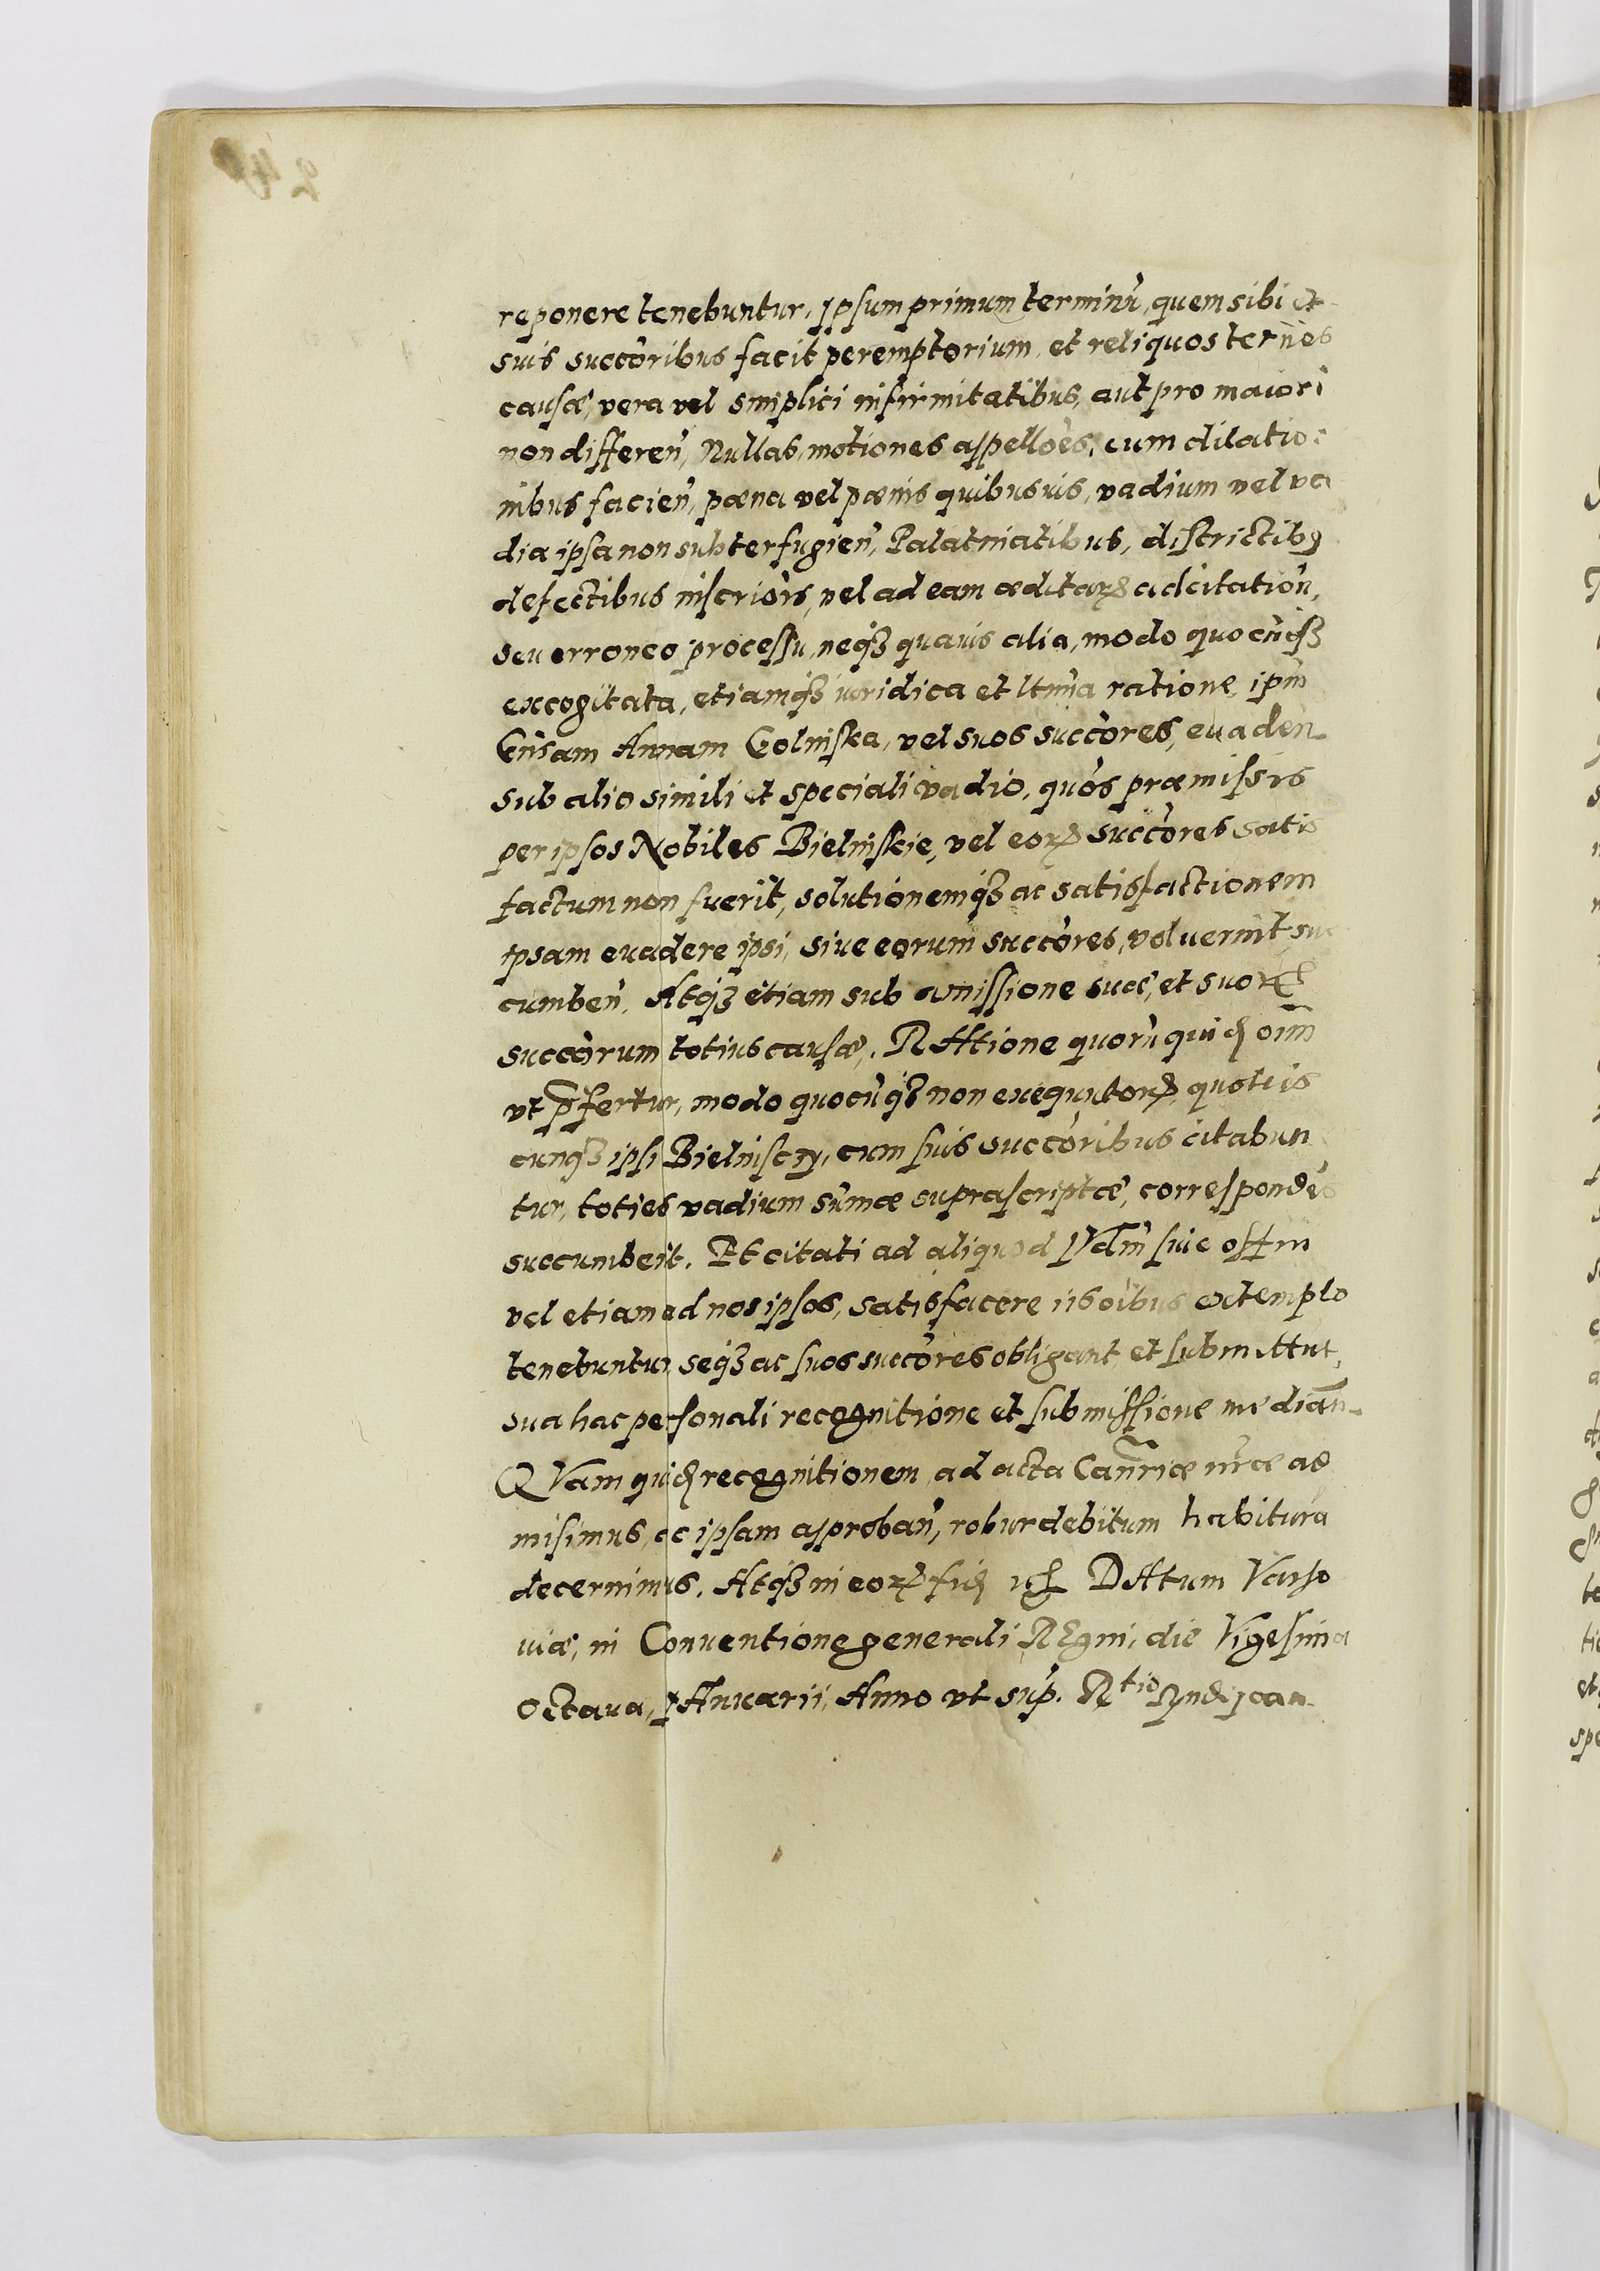 reponere tenebuntur, ipsum primum terminū, quem sibi et
suis succōribus facit peremptorium, et reliquos ternōs
causæ, vera vel simplici infirmitatibus, aut pro maiori
non differen̄, Nullas, motiones appellōēs, cum dilatio-
nibus facien̄, pæna vel pænis quibusuis, vadium vel va
dia ipsa non subterfugien̄, Palatinatibus, districtibꝫ
defectibus inscriōis, vel ad eam æditarꝝ adcitatiōn,
seu erroneo processu, neqꝫ quauis alia, modo quocūqꝫ
excogitata, etiamqꝫ iuridica et ltm̄a ratione, ipm̄
Gn̄sam Annam Golniska, vel suos succōres, euaden̄
sub alio simili et speciali vadio, quōs præmissis
per ipsos Nobiles Bielniskie, vel eorꝝ succōres satis
factum non fuerit, solutionemqꝫ ac satisfactionem
ipsam euadere ipsi, siue eorum succōres, voluerint suc
cumben̄. Atqꝫ etiam sub amissione suæ, et suorꝝ
succōrum totius causæ. RAtione quorū quid oīm
vt p̄fertur, modo quocūqꝫ non exequutorꝝ, quotis
cunqꝫ ipsi Bielnisczy, cum suis succōribus citabun
tur, toties vadium sum̄æ suprascriptæ, correspondēs
succumbent. Et citati ad aliquod Vdm̄ siue offm̄
vel etiam ad nos ipsos, satisfacere iis oībus extemplo
tenebuntur, seqꝫ ac suos succōres obligant, et submittut,
sua hac personali recognitione et submissione median̄.
QVam quid recognitionem, ad acta Can̄riæ nr̄æ ad
misimus, ac ipsam approban̄, robur debitum habitura
decernimus. Atqꝫ in eorꝝ fid DAtum Varso
uiæ, in Conuentione generali REgni, die Vigesima
octaua, IAnuarii, Anno vt sup. Rtio